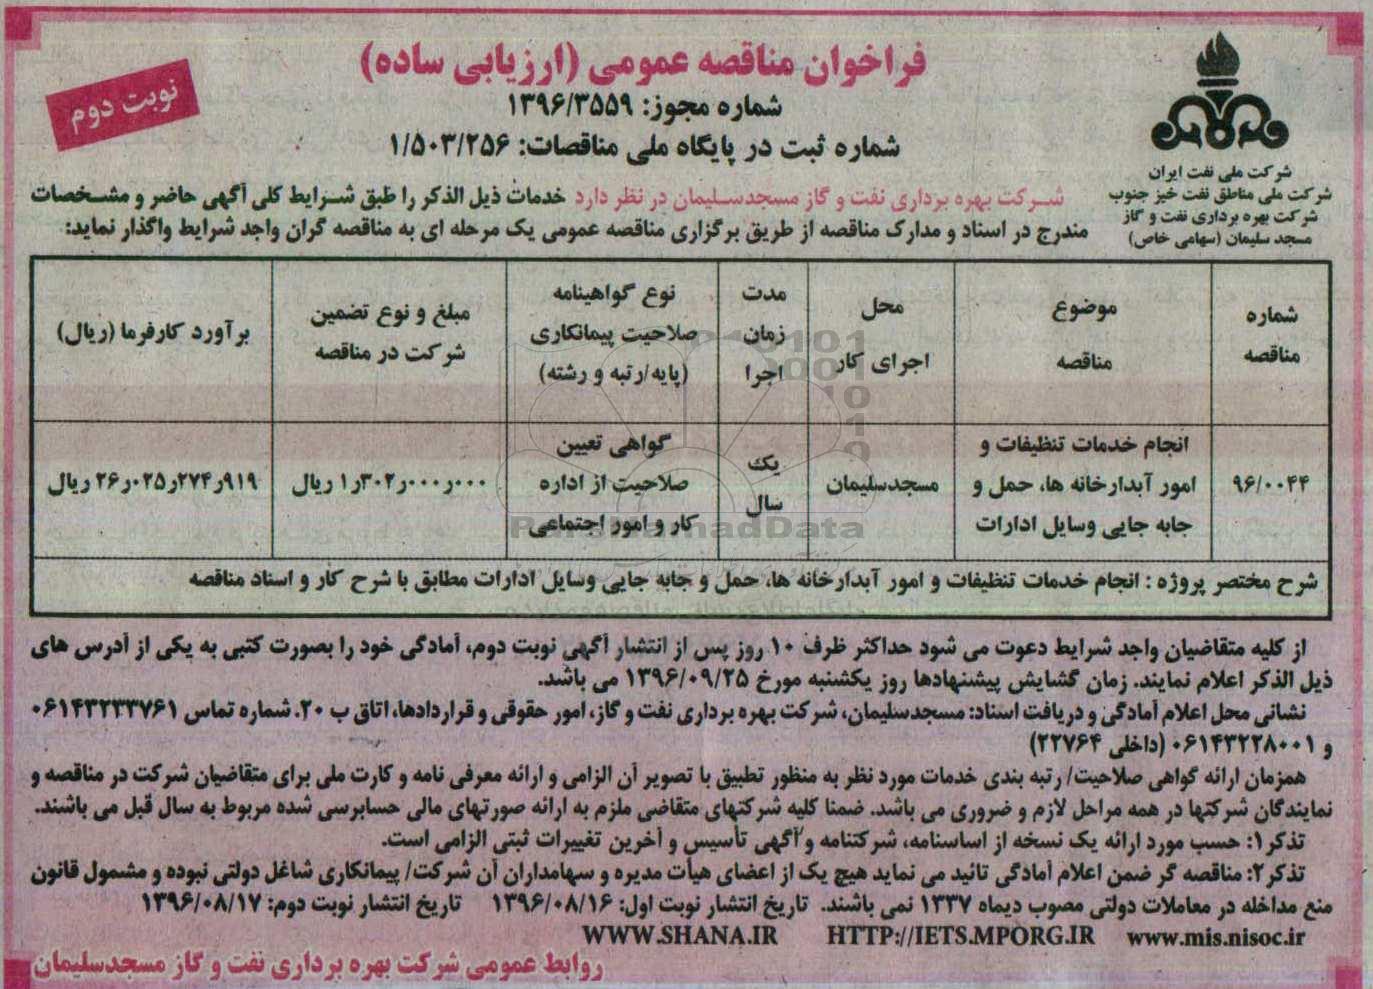 فراخوان مناقصه عمومی (ارزیابی ساده)
نوبت دوم
شماره مجوز: ۱۳۹۶/۳۵۵۹
شماره ثبت در پایگاه ملی مناقصات: ۱/۵۰۳/۲۵۶
شرکت ملی نفت ایران
شرکت ملی مناطق نفت خیز جنوب
شرکت بهره برداری نفت و گاز
مسجد سلیمان (سهامی خاص)
شرکت بهره برداری نفت و گاز مسجدسلیمان در نظر دارد خدمات ذیل الذکر را طبق شرایط کلی آگهی حاضر و مشخصات
مندرج در اسناد و مدارک مناقصه از طریق برگزاری مناقصه عمومی یک مرحله ای به مناقصه گران واجد شرایط واگذار نماید:
شماره
مناقصه
موضوع
مناقصه
محل
اجرای کار
مدت
زمان
اجرا
نوع گواهینامه
صلاحیت پیمانکاری
(پایه/رتبه و رشته)
مبلغ و نوع تضمین
شرکت در مناقصه
برآورد کارفرما (ریال)
۹۶/۰۰۴۴
انجام خدمات تنظیفات و
امور آبدارخانه ها، حمل و
جابه جایی وسایل ادارات
مسجدسلیمان
یک
سال
گواهی تعیین
صلاحیت از اداره
کار و امور اجتماعی
۱٫۳۰۲٫۰۰۰٫۰۰۰ ریال
۲۶٫۰۲۵٫۲۷۴٫۹۱۹ ریال
شرح مختصر پروژه : انجام خدمات تنظیفات و امور آبدارخانه ها، حمل و جابه جایی وسایل ادارات مطابق با شرح کار و اسناد مناقصه
ParsNamadData
از کلیه متقاضیان واجد شرایط دعوت می شود حداکثر ظرف ۱۰ روز پس از انتشار آگهی نوبت دوم، آمادگی خود را بصورت کتبی به یکی از آدرس های
ذیل الذکر اعلام نمایند. زمان گشایش پیشنهادها روز یکشنبه مورخ ۱۳۹۶/۰۹/۲۵ می باشد.
نشانی محل اعلام آمادگی و دریافت اسناد: مسجدسلیمان، شرکت بهره برداری نفت و گاز، امور حقوقی و قراردادها، اتاق ب ۲۰. شماره تماس ۰۶۱۴۳۲۳۳۷۶۱
و ۰۶۱۴۳۲۲۸۰۰۱ (داخلی ۲۲۷۶۴)
همزمان ارائه گواهی صلاحیت/ رتبه بندی خدمات مورد نظر به منظور تطبیق با تصویر آن الزامی و ارائه معرفی نامه و کارت ملی برای متقاضیان شرکت در مناقصه و
نمایندگان شرکتها در همه مراحل لازم و ضروری می باشد. ضمنا کلیه شرکتهای متقاضی ملزم به ارائه صورتهای مالی حسابرسی شده مربوط به سال قبل می باشند.
تذکر۱: حسب مورد ارائه یک نسخه از اساسنامه، شرکتنامه و آگهی تأسیس و آخرین تغییرات ثبتی الزامی است.
تذکر۲: مناقصه گر ضمن اعلام آمادگی تائید می نماید هیچ یک از اعضای هیأت مدیره و سهامداران آن شرکت/ پیمانکاری شاغل دولتی نبوده و مشمول قانون
منع مداخله در معاملات دولتی مصوب دیماه ۱۳۳۷ نمی باشند. تاریخ انتشار نوبت اول: ۱۳۹۶/۰۸/۱۶ تاریخ انتشار نوبت دوم: ۱۳۹۶/۰۸/۱۷
WWW.SHANA.IR HTTP://IETS.MPORG.IR www.mis.nisoc.ir
روابط عمومی شرکت بهره برداری نفت و گاز مسجدسلیمان